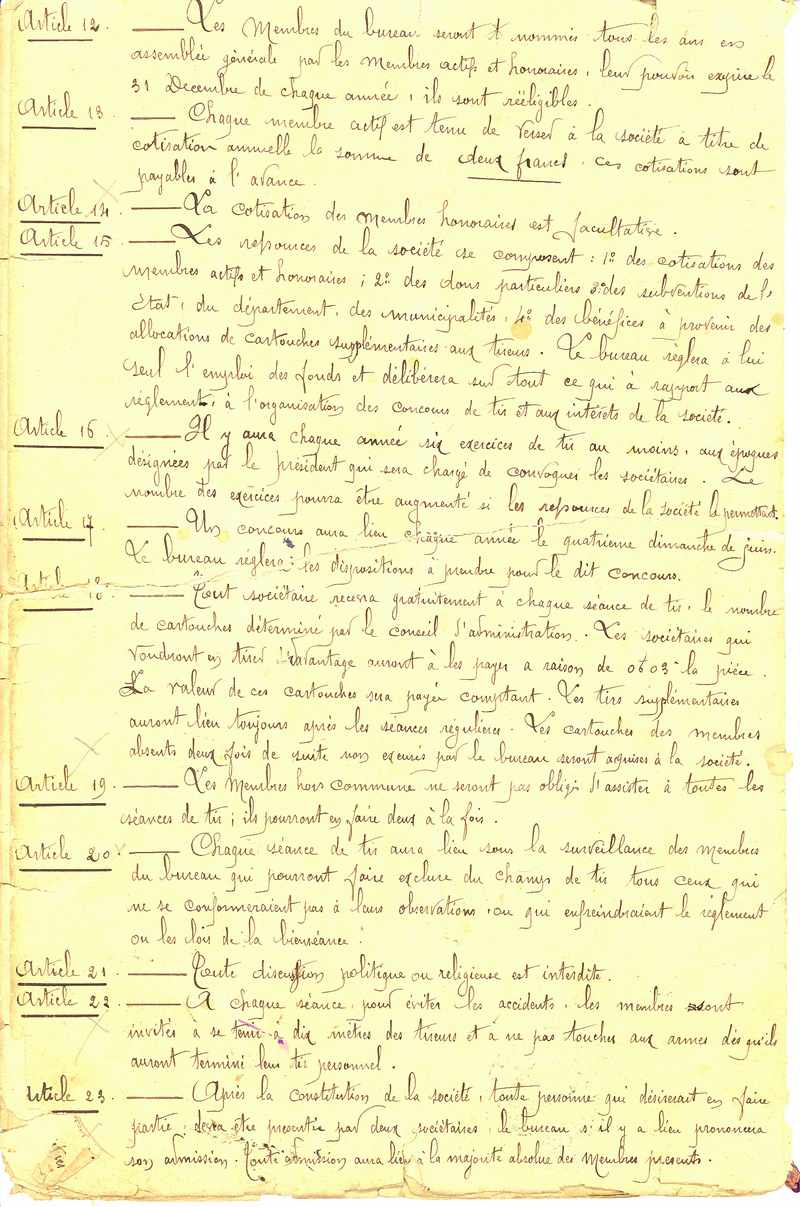 Article 12. — Les Membres du bureau seront nommés tous les ans en
assemblée générale par les Membres actifs et honoraires, leur pouvoir expire le
31 Décembre de chaque année, ils sont rééligibles.
Article 13 — Chaque membre actif est tenu de verser à la société à titre de
cotisation annuelle la somme de deux francs. Ces cotisations sont
payables à l'avance.
Article 14. — La cotisation des Membres honoraires est facultative.
Article 15 — Les ressources de la société se composent : 1º des cotisations des
membres actifs et honoraires ; 2º des dons particuliers 3º des subventions de l'
Etat, du département, des municipalités, 4º des bénéfices à provenir des
allocations de cartouches supplémentaires aux tireurs. Le bureau règlera à lui
seul l'emploi des fonds et délibérera sur tout ce qui à rapport aux
règlement, à l'organisation des concours de tir et aux intérêts de la société.
Article 16 — Il y aura chaque année six exercices de tir au moins, aux époques
désignées par le président qui sera chargé de convoquer les sociétaires. Le
nombre des exercices pourra être augmenté si les ressources de la société le permettent.
Article 17 — Un concours aura lieu chaque année le quatrième dimanche de juin.
Le bureau réglera les dispositions à prendre pour le dit concours.
Article 18 — Tout sociétaire recevra gratuitement à chaque séance de tir, le nombre
de cartouches déterminé par le conseil d'administration. Les sociétaires qui
voudront en tirer davantage auront à les payer a raison de 0f03 la pièce.
La valeur de ces cartouches sera payée comptant. Les tirs supplémentaires
auront lieu toujours après les séances régulières. Les cartouches des membres
absents deux fois de suite non excusés par le bureau seront acquises à la société.
Article 19 — Les Membres hors commune ne seront pas obligés d'assister à toutes les
séances de tir ; ils pourront en faire deux à la fois.
Article 20 — Chaque séance de tir aura lieu sous la surveillance des Membres
du bureau qui pourront faire exclure du champ de tir tous ceux qui
ne se conformeraient pas à leurs observations, ou qui enfreindraient le règlement
ou les lois de la bienséance.
Article 21. — Toute discussion politique ou religieuse est interdite.
Article 22. — A chaque séance, pour éviter les accidents, les membres sont
invités à se tenir à dix mètres des tireurs et à ne pas toucher aux armes dès qu'ils
auront terminé leur tir personnel.
Article 23. — Après la constitution de la société, toute personne qui désirerait en faire
partie, devra être présentée par deux sociétaires, le bureau s'il y a lieu prononcera
son admission. Toute admission aura lieu à la majorité absolue des Membres présents.